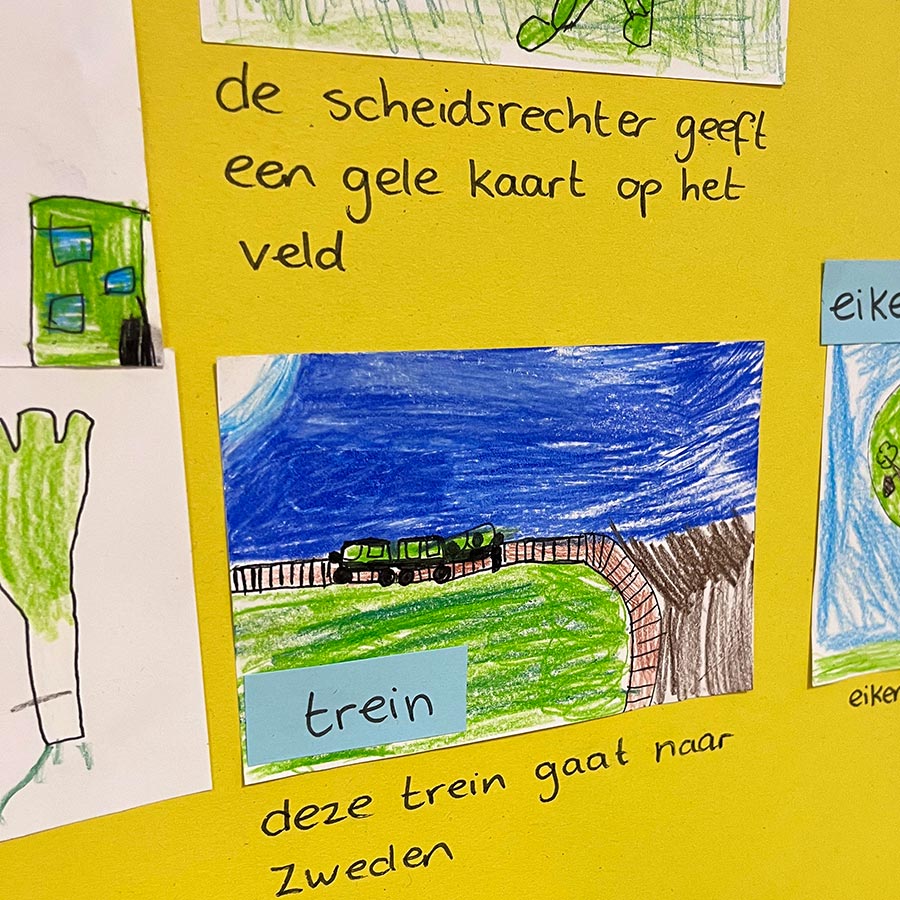 de scheidsrechter geeft
een gele kaart op het
veld
trein
deze trein gaat naar
Zweden